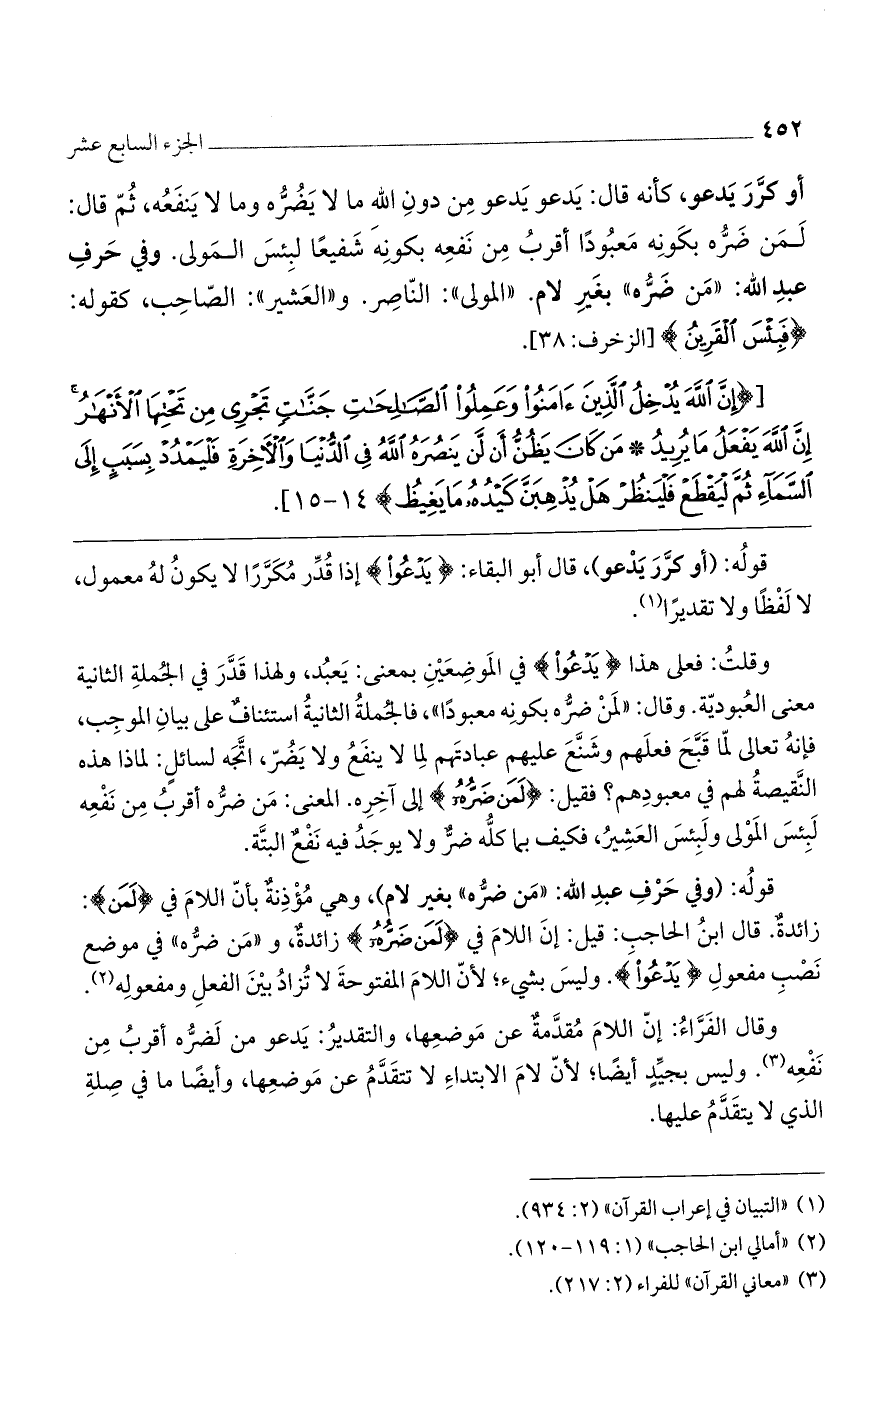 ٤٥٢ الجزء السابع عشر
أو كرَّرَ يَدعو، كأنه قال: يَدعو يَدعو مِن دونِ الله ما لا يَضُرُّه وما لا يَنفَعُه، ثُمّ قال:
لَـمَن ضَرُّه بكَونِه مَعبُودًا أقربُ مِن نَفعِه بكونِه شَفيعًا لبِئسَ الـمَولى. وفي حَرفِ
عبدِ الله: «مَن ضَرُّه» بغَيرِ لام. «المولى»: النّاصِر. و«العَشير»: الصّاحِب، كقوله:
﴿فَبِئْسَ ٱلْقَرِينُ﴾ [الزخرف: ٣٨].
[﴿إِنَّ ٱللَّهَ يُدْخِلُ ٱلَّذِينَ ءَامَنُوا۟ وَعَمِلُوا۟ ٱلصَّـٰلِحَـٰتِ جَنَّـٰتٍ تَجْرِى مِن تَحْتِهَا ٱلْأَنْهَـٰرُ ۚ
إِنَّ ٱللَّهَ يَفْعَلُ مَا يُرِيدُ * مَن كَانَ يَظُنُّ أَن لَّن يَنصُرَهُ ٱللَّهُ فِى ٱلدُّنْيَا وَٱلْـَٔاخِرَةِ فَلْيَمْدُدْ بِسَبَبٍ إِلَى
ٱلسَّمَآءِ ثُمَّ لْيَقْطَعْ فَلْيَنظُرْ هَلْ يُذْهِبَنَّ كَيْدُهُۥ مَا يَغِيظُ﴾ ١٤-١٥].
قولُه: (أو كرَّرَ يَدْعو)، قال أبو البقاء: ﴿يَدْعُوا۟﴾ إذا قُدِّر مُكَرَّرًا لا يكونُ لهُ معمول،
لا لَفْظًا ولا تقديرًا(١).
وقلتُ: فعلى هذا ﴿يَدْعُوا۟﴾ في المَوضِعَيْنِ بمعنى: يَعبُد، ولهذا قَدَّرَ في الجُملةِ الثانية
معنى العُبوديّة. وقال: «لمَنْ ضرُّه بكونِه معبودًا»، فالجُملةُ الثانيةُ استئنافٌ على بيانِ الموجِب،
فإنهُ تعالى لمّا قَبَّحَ فعلَهم وشَنَّعَ عليهم عبادتَهم لِما لا ينفَعُ ولا يَضُرّ، اتَّجَه لسائلٍ: لماذا هذه
النَّقيصةُ لهم في معبودِهم؟ فقيل: ﴿لَمَن ضَرُّهُۥٓ﴾ إلى آخِرِه. المعنى: مَن ضرُّه أقربُ مِن نَفْعِه
لَبِئسَ المَوْلى ولَبِئسَ العَشِيرُ، فكيف بما كلُّه ضرٌّ ولا يوجَدُ فيه نَفْعٌ البتَّة.
قولُه: (وفي حَرْفِ عبدِ الله: «مَن ضرُّه» بغير لام)، وهي مُؤْذِنةٌ بأنّ اللامَ في ﴿لَمَن﴾:
زائدةٌ. قال ابنُ الحاجبِ: قيل: إنَ اللامَ في ﴿لَمَن ضَرُّهُۥٓ﴾ زائدةٌ، و «مَن ضرُّه» في موضع
نَصْبِ مفعولِ ﴿يَدْعُوا۟﴾. وليسَ بشيء؛ لأنّ اللامَ المفتوحةَ لا تُزادُ بيْنَ الفعلِ ومفعولِه(٢).
وقال الفَرَّاءُ: إنّ اللامَ مُقدَّمةٌ عن مَوضعِها، والتقديرُ: يَدعو من لَضرُّه أقربُ مِن
نَفْعِه(٣). وليس بجيِّدٍ أيضًا؛ لأنّ لامَ الابتداءِ لا تتقَدَّمُ عن مَوضعِها، وأيضًا ما في صِلةِ
الذي لا يتقَدَّمُ عليها.
(١) «التبيان في إعراب القرآن» (٢: ٩٣٤).
(٢) «أمالي ابن الحاجب» (١: ١١٩-١٢٠).
(٣) «معاني القرآن» للفراء (٢: ٢١٧).